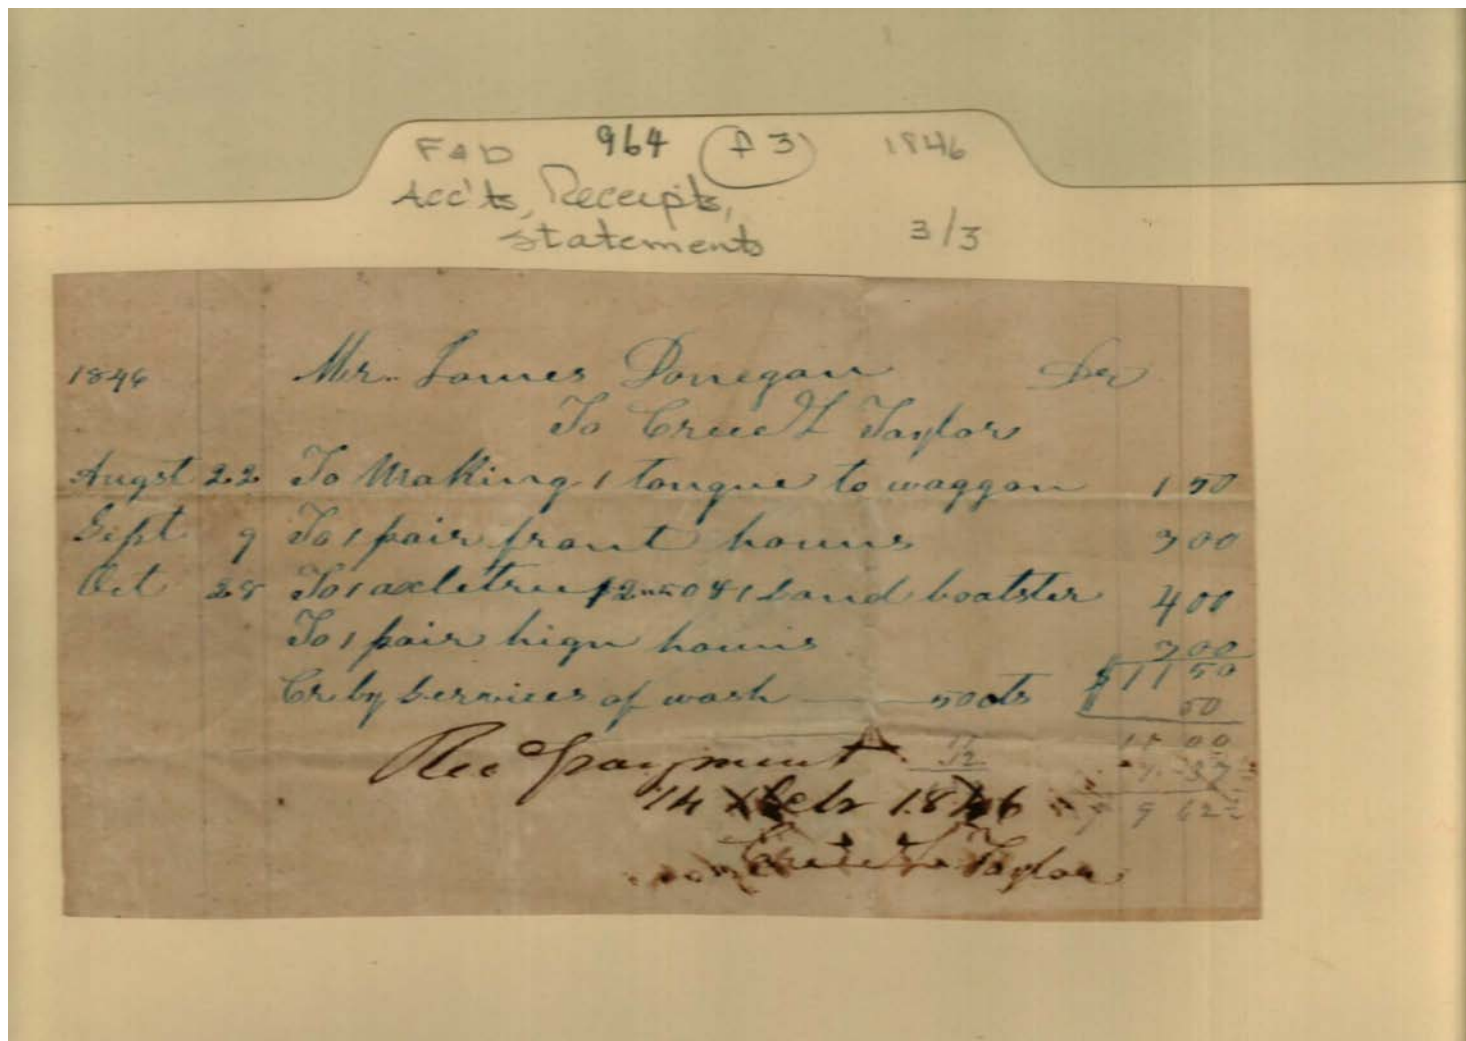 F&D 964 f 3 1846
Acc'ts, Receipts,
Statements 3/3
1846 Mr. James Donegan Dr
To Cree & Taylor
Augst 22 To Making 1 tongue to waggon 1 50
Sept 9 To 1 pair front houns 3 00
Oct 28 To 1 axletree $2.50 & 1 Sand boalster 4 00
To 1 pair hign houns 3 00
$11 50
Cr by Services of wash 50 cts 50
11 00
Rec payment
14 Feb 1846
9 62
Taylor